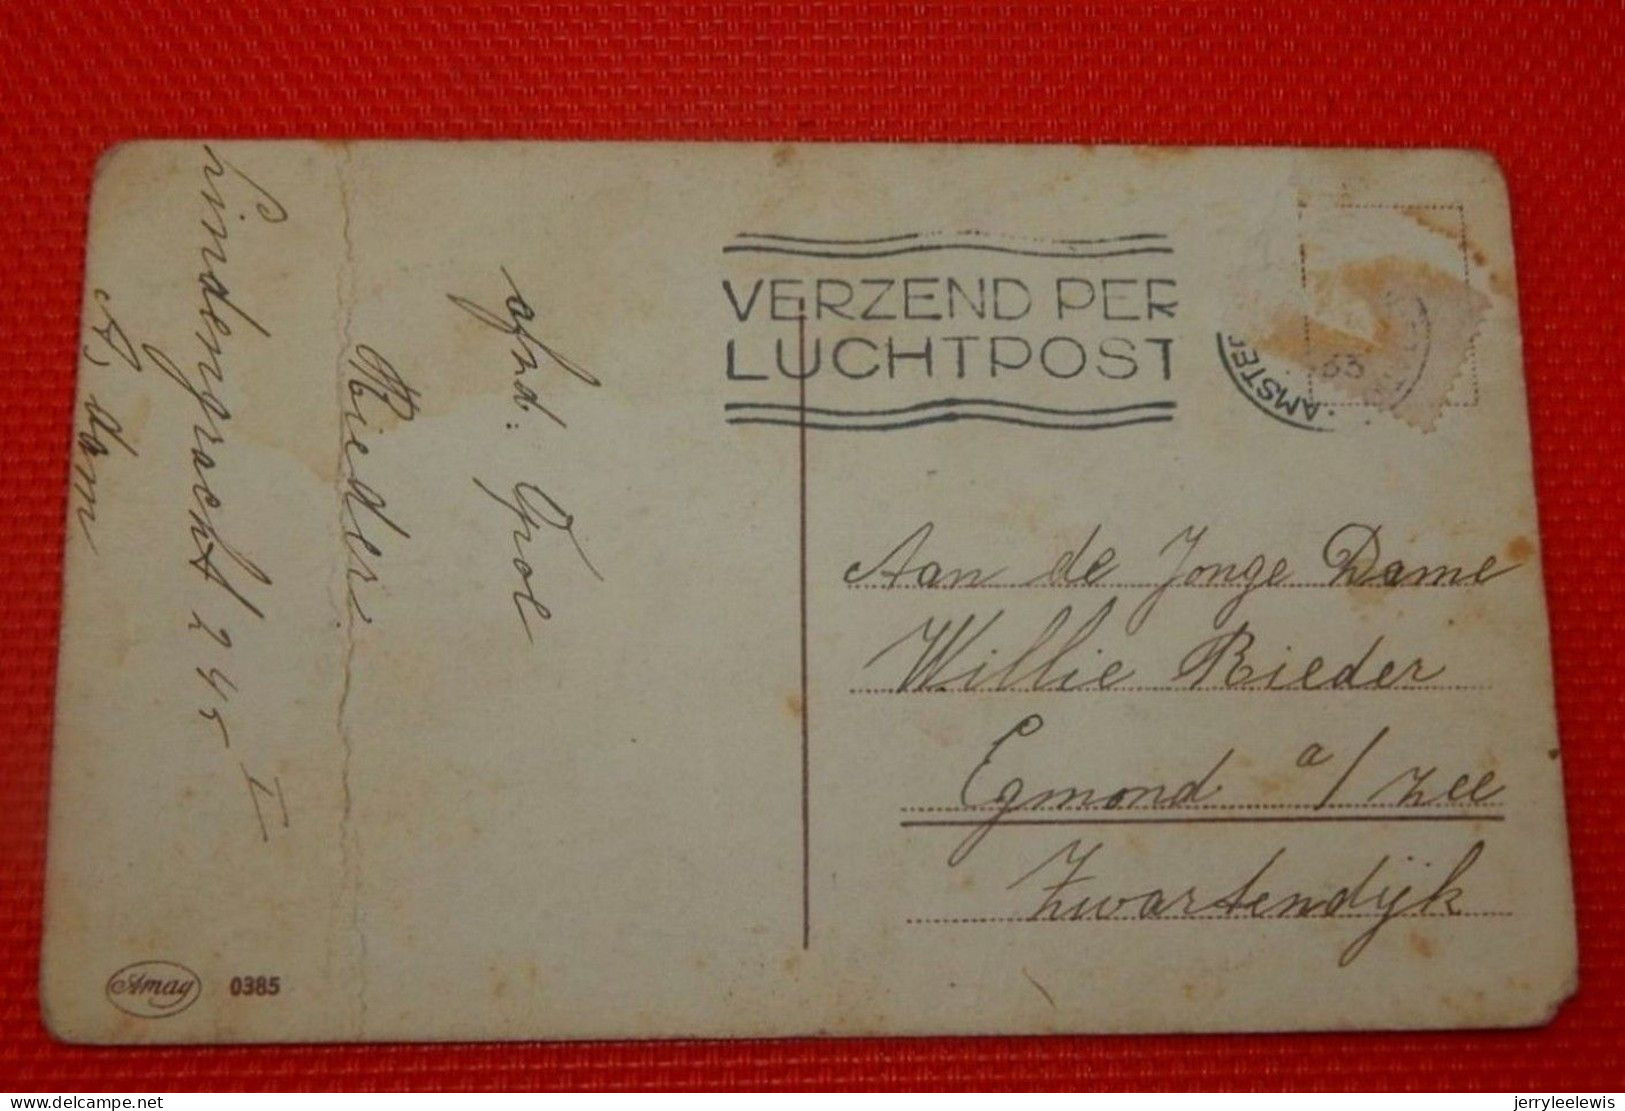 VERZEND PER
LUCHTPOST
AMSTER
33
afzd: Opoe
Rieder.
Lindengracht 245 I
A, dam
Aan de Jonge Dame
Willie Rieder
Egmond a/zee
Zwartendijk
Amag 0385
delcampe.net
jerryleelewis